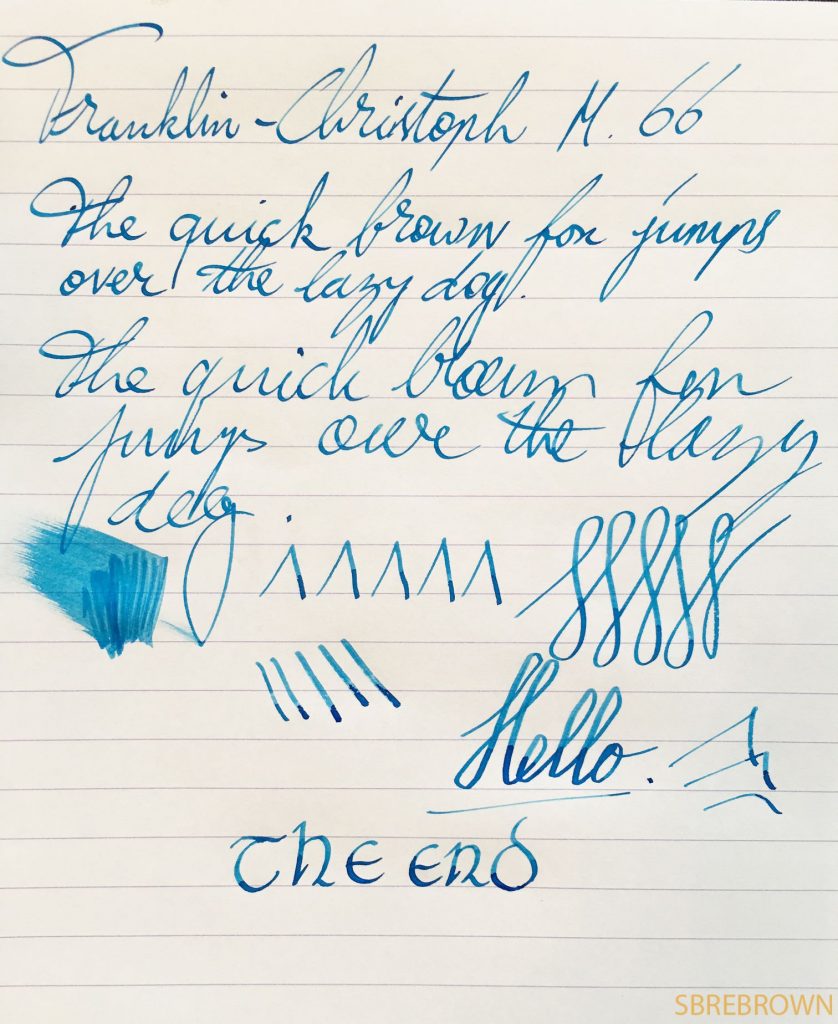 Franklin-Christoph M. 66
The quick brown fox jumps
over the lazy dog.
The quick brown fox
jumps over the lazy
dog.
Hello.
THE END
SBREBROWN